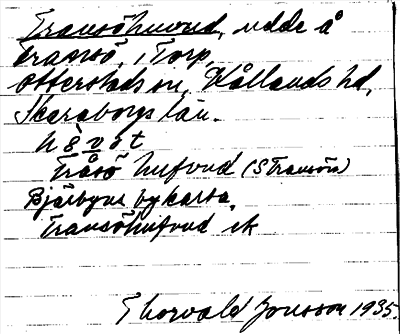 Fransöhuvud, udde å
Fransö, i Torp,
Otterstads sn, Kållands hd,
Skaraborgs län.
Fråsö hufvud (S Fransön)
Bjärbyns bykarta.
Fransöhufvud ek
Thorvald Jonsson 1935.